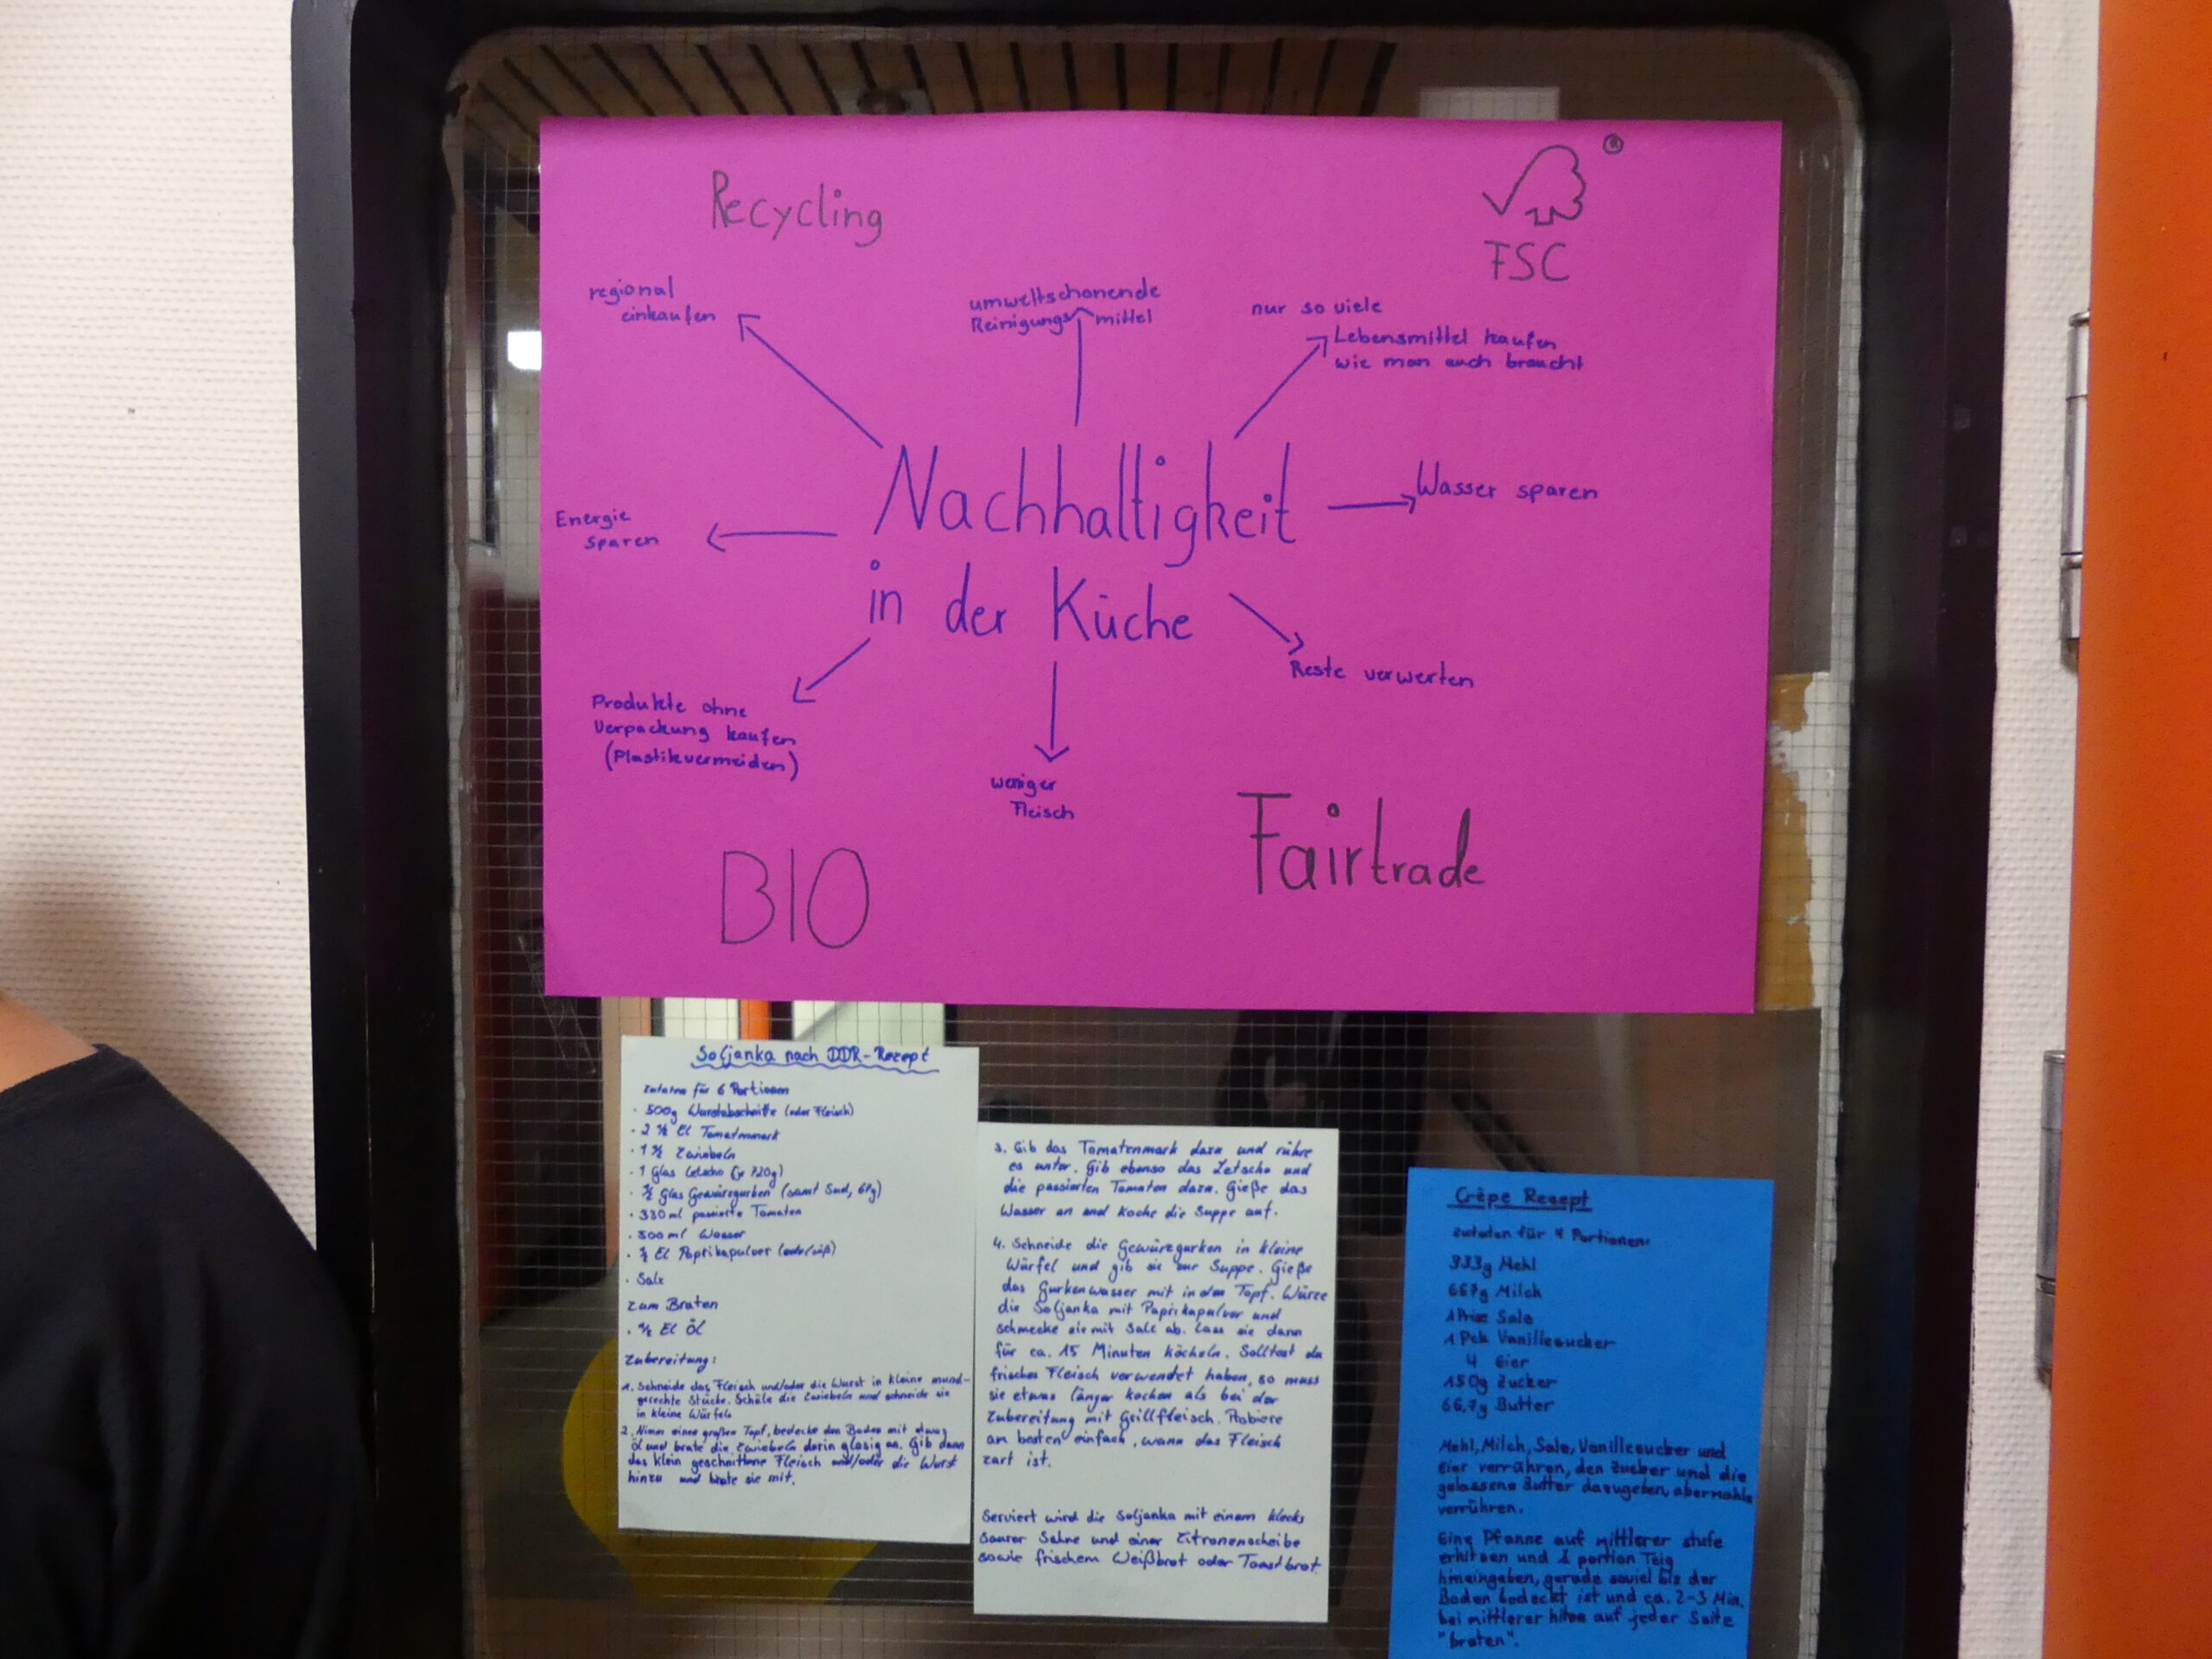 Recycling
®
FSC
regional
einkaufen
umweltschonende
Reinigungsmittel
nur so viele
Lebensmittel kaufen
wie man auch braucht
Nachhaltigkeit
in der Küche
Wasser sparen
Energie
sparen
Reste verwerten
Produkte ohne
Verpackung kaufen
(Plastikvermeiden)
weniger
Fleisch
BIO
Fairtrade
Soljanka nach DDR-Rezept
Zutaten für 6 Portionen
· 500g Wurstabschnitte (oder Fleisch)
· 2 ½ El Tomatenmark
· 1 ½ Zwiebeln
· 1 Glas Letscho
· ½ Glas Gewürzgurken (samt Sud,
· 330ml passierte Tomaten
· 500ml Wasser
· ½ El Paprikapulver (edelsüß)
· Salz
zum Braten
· ½ El Öl
Zubereitung:
1. Schneide das Fleisch und/oder die Wurst in kleine mund-
gerechte Stücke. Schäle die Zwiebeln und schneide sie
in kleine Würfel.
2. Nimm einen großen Topf, bedecke den Boden mit etwas
Öl und brate die Zwiebeln darin glasig an. Gib dann
das klein geschnittene Fleisch und/oder die Wurst
hinzu und brate sie mit.
3. Gib das Tomatenmark dazu und rühre
es unter. Gib ebenso das Letscho und
die passierten Tomaten dazu. Gieße das
Wasser an und koche die Suppe auf.
4. Schneide die Gewürzgurken in kleine
Würfel und gib sie zur Suppe. Gieße
das Gurkenwasser mit in den Topf. Würze
die Soljanka mit Paprikapulver und
schmecke sie mit Salz ab. Lass sie dann
für ca. 15 Minuten köcheln. Solltest du
frisches Fleisch verwendet haben, so muss
sie etwas länger kochen als bei der
Zubereitung mit Grillfleisch. Probiere
am besten einfach, wann das Fleisch
zart ist.
Serviert wird die Soljanka mit einem klecks
saurer Sahne und einer Zitronenscheibe
sowie frischem Weißbrot oder Toastbrot.
Crêpe Rezept
Zutaten für 4 Portionen:
333g Mehl
667g Milch
1 Prise Salz
1 Pck Vanillezucker
4 Eier
150g Zucker
66,7g Butter
Mehl, Milch, Salz, Vanillezucker und
Eier verrühren, den Zucker und die
gelassene Butter dazugeben, abermahls
verrühren.
Eine Pfanne auf mittlerer stufe
erhitzen und 1 portion Teig
hineingeben, gerade soviel bis der
Boden bedeckt ist und ca. 2-3 Min.
bei mittlerer hitze auf jeder Seite
"braten".